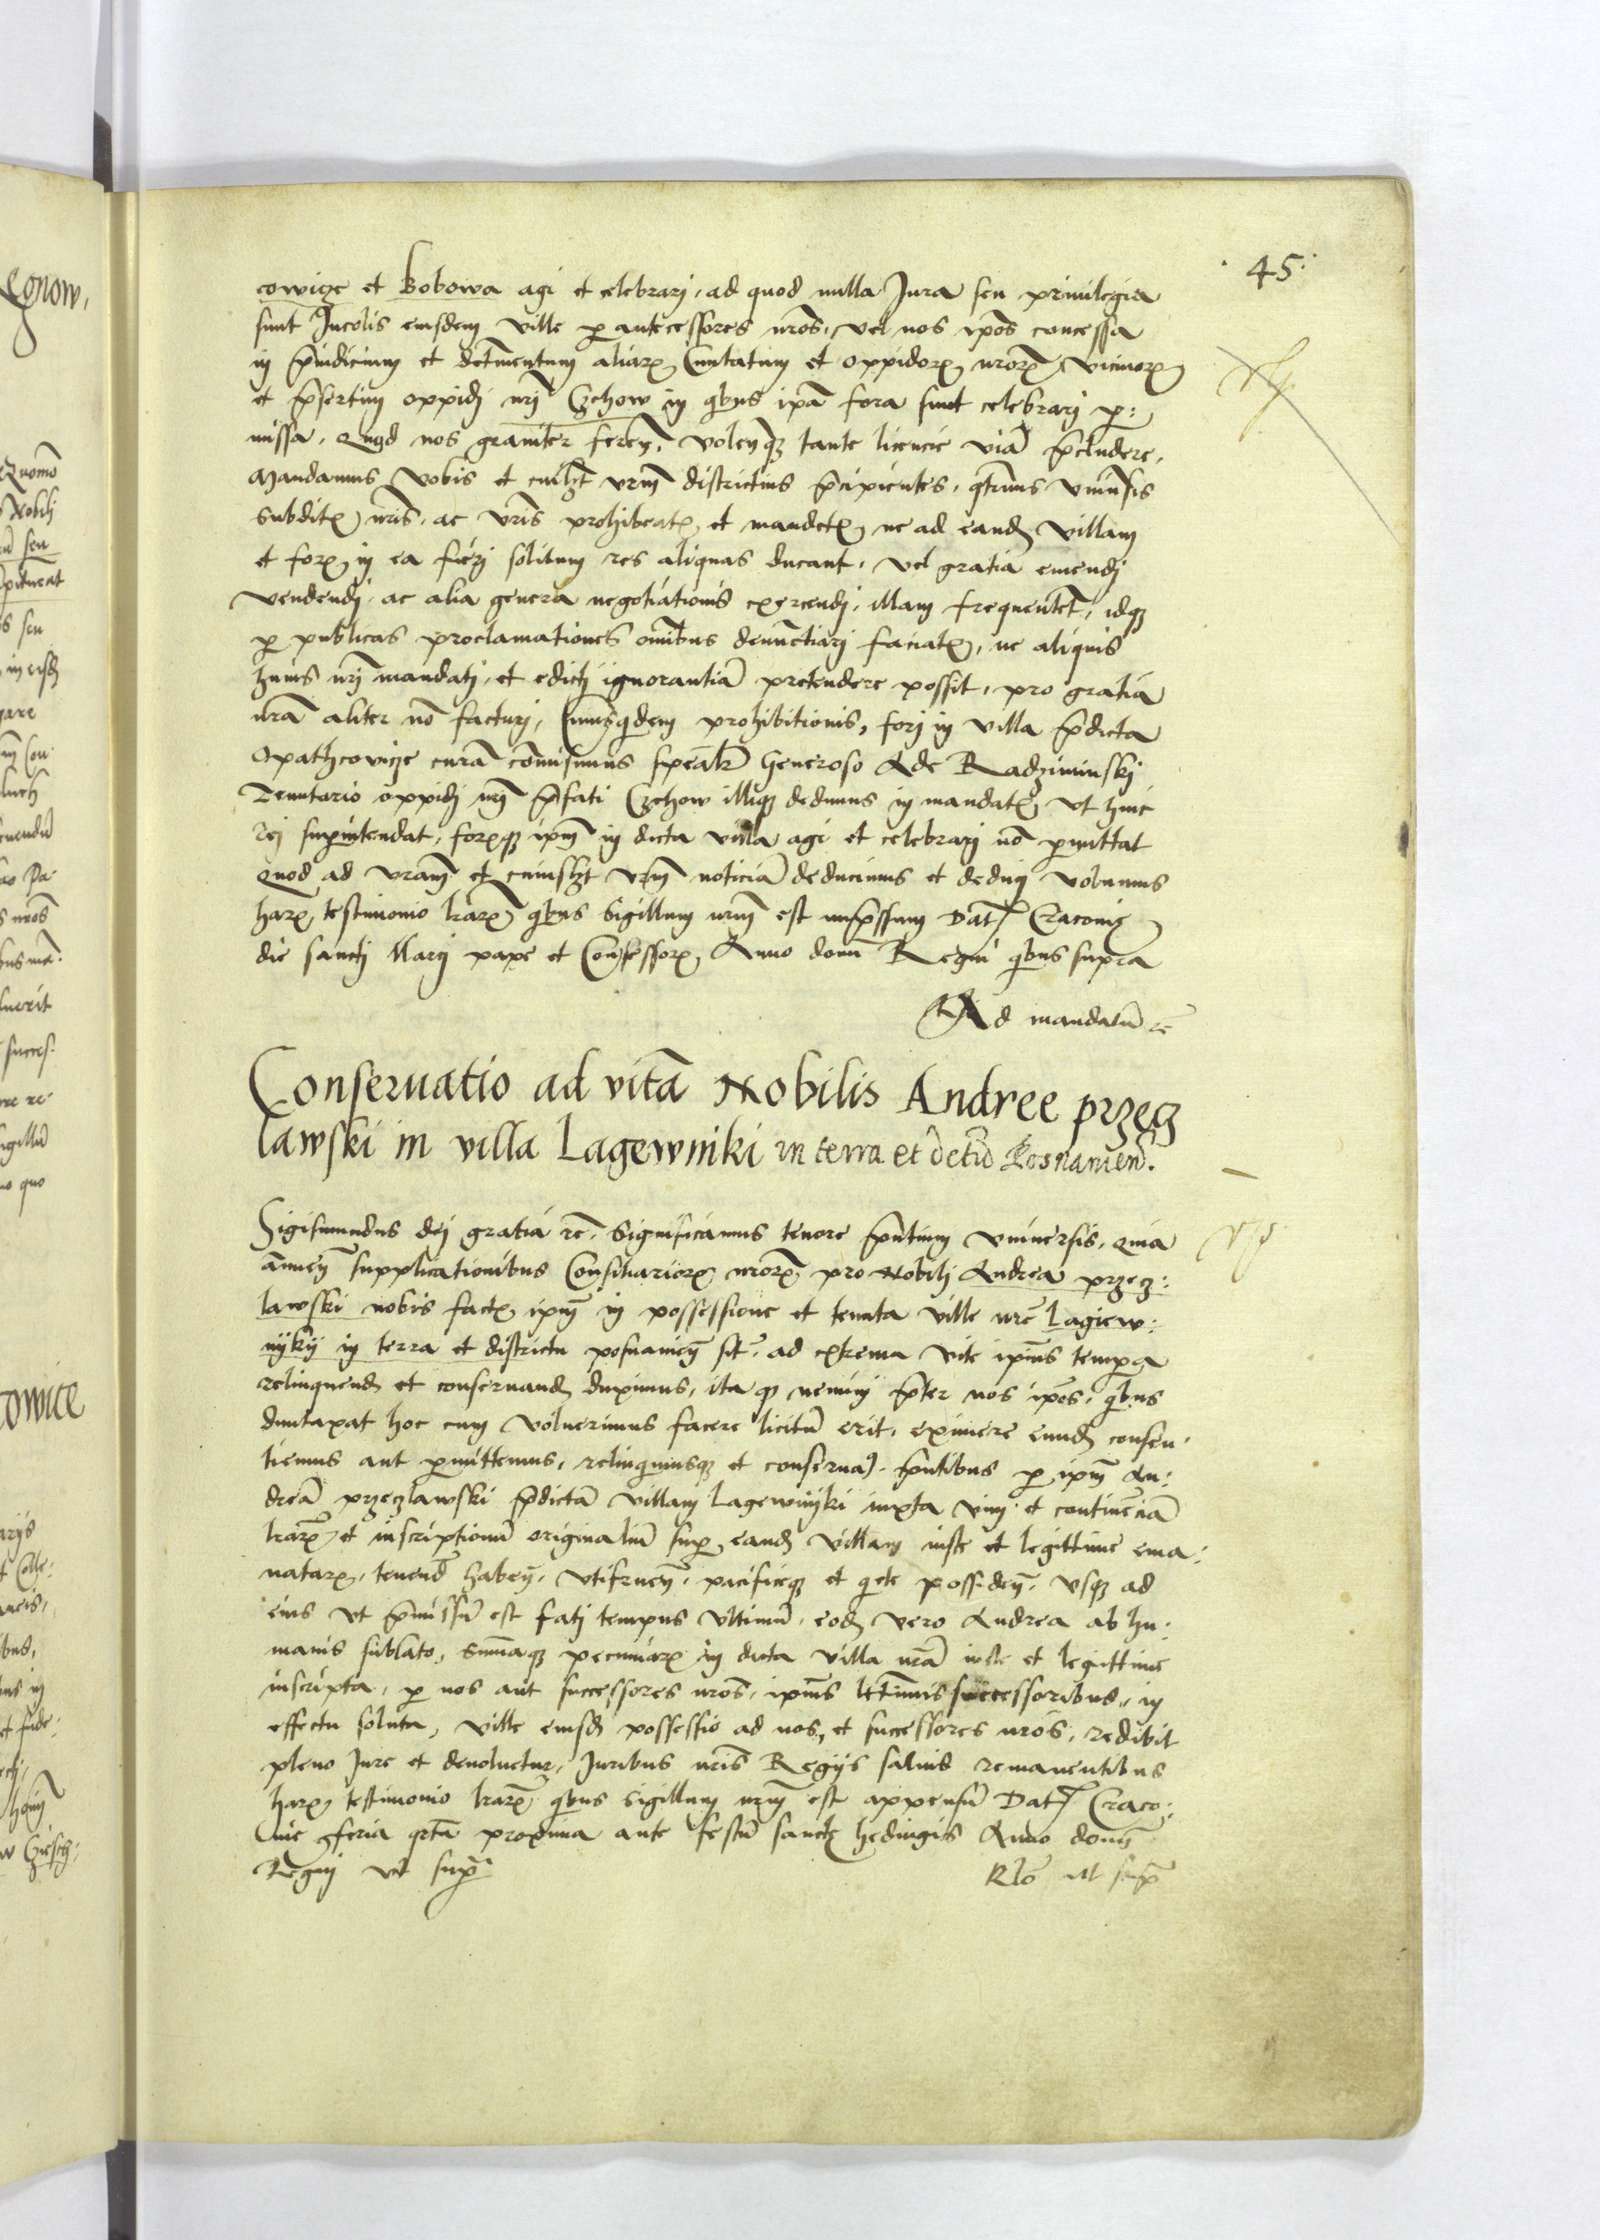 45.
cowicze et Bobowa agi et celebrari, ad quod nulla Jura seu privilegia
sunt Incolis eiusdem ville p antecessores nros, vel nos ipos concessa
in piudicium et detrimentum aliarum Civitatum et oppidorum nrorum vicinorum
et psertim oppidi nri Czchow in qbus ipa fora sunt celebrari per:
missa. Quod nos graviter feren. volenq tante licencie via pcludere,
Mandamus vobis et cuilzt vrum districtius pcipientes, qtenus universis
subditis nris, ac vris prohibeatis et mandetis ne ad eand villam
et forum in ea fieri solitum res aliquas ducant, vel gratia emendi
vendendi, ac alia genera negotiationis exercendi, illam frequentet, idq
p publicas proclamationes omibus denunctiari faciatis, ne aliquis
huius nri mandati, et edicti ignorantia pretendere possit, pro gratia
nra aliter no facturi, Cuiusqdem prohibitionis, fori in villa pdicta
Opathcovicze cura comisimus speabli Generoso Ade Radziminski
Tenutario oppidi nri pfati Czchow illiq dedimus in mandatis ut huic
rei supintendat, forumq ipm in dicta villa agi et celebrari no pmittat
Quod ad vram et cuiuslzt vrm noticia deducimus et deduci volumus
harum testimonio lrarum qbus Sigillum nrum est impssum Dat Cracovie
die sancti Marci pape et Confessoris Anno domi Regni qbus supra
Ad mandatu &c
Conservatio ad vita Nobilis Andree przecz
lawski in villa Lagewniki in terra et detu Posnanien.
Sigismundus dei gratia &c. Significamus tenore pntium universis, quia
annuen supplicationibus Consiliariorum nrorum pro Nobili Andrea przecz:
lawski nobis factis ipm in possessione et tenuta ville nre Lagiew:
nyky in terra et districtu posnanien sit. ad extrema vite ipius tempora
relinquend et conservand duximus, ita q nemini pter nos ipos, qbus
duntaxat hoc cum voluerimus facere licitu erit, eximere eund consen:
tiemus aut pmittemus, relinquimusq et conserva). pntibus p ipm An:
drea przeczlawski pdicta villam Lagewnyki iuxta vim et continencia
lrarum et inscriptionu originaliu sup eand villam iuste et legittime ema:
natarum, tenend haben, utifruen, pacificeq et qete possiden, usq ad
eius ut pmissu est fati tempus ultimu, eod vero Andrea ab hu:
manis sublato, sumaq pecuniarum in dicta villa nra iuste et legittime
inscripta, p nos aut successores nros, ipius letimis successoribus, in
effectu soluta, ville eiusd possessio ad nos, et successores nros, redibit
pleno Jure et devoluetur, Juribus nris Regijs salvis remanentibus
harum testimonio lrarum qbus Sigillum nrum est appensu Dat Craco:
vie feria qrta proxima ante festu sancte hedvigis Anno domi
Regni ut supra
Rlo ut sup